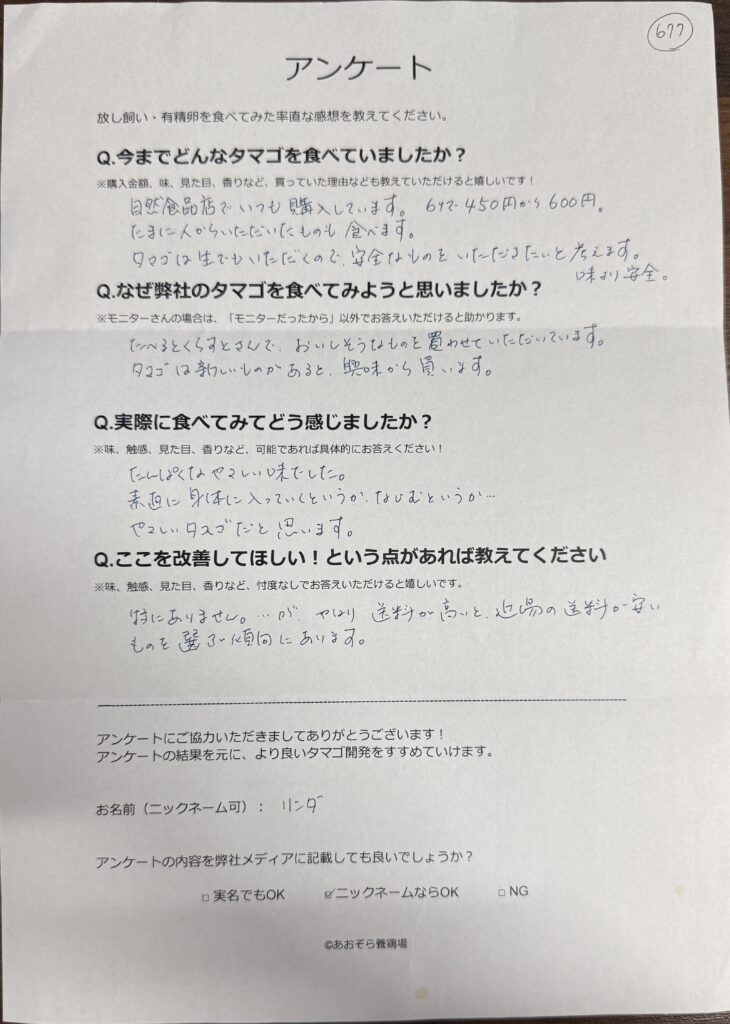 677
アンケート
放し飼い・有精卵を食べてみた率直な感想を教えてください。
Q.今までどんなタマゴを食べていましたか？
※購入金額、味、見た目、香りなど、買っていた理由なども教えていただけると嬉しいです！
自然食品店でいつも購入しています。 6ケで450円から600円。
たまに人からいただいたものも食べます。
タマゴは生でもいただくので、安全なものをいただきたいと考えます。
味より安全。
Q.なぜ弊社のタマゴを食べてみようと思いましたか？
※モニターさんの場合は、「モニターだったから」以外でお答えいただけると助かります。
たべるとくらすとさんで、おいしそうなものを買わせていただいています。
タマゴは新しいものがあると、興味から買います。
Q.実際に食べてみてどう感じましたか？
※味、触感、見た目、香りなど、可能であれば具体的にお答えください！
たんぱくなやさしい味でした。
素直に身体に入っていくというか、なじむというか…
やさしいタマゴだと思います。
Q.ここを改善してほしい！という点があれば教えてください
※味、触感、見た目、香りなど、忖度なしでお答えいただけると嬉しいです。
特にありません。…が、やはり送料が高いと、近場の送料が安い
ものを選ぶ傾向にあります。
アンケートにご協力いただきましてありがとうございます！
アンケートの結果を元に、より良いタマゴ開発をすすめていけます。
お名前（ニックネーム可）： リンダ
アンケートの内容を弊社メディアに記載しても良いでしょうか？
□ 実名でもOK ☑ニックネームならOK □ NG
©あおぞら養鶏場